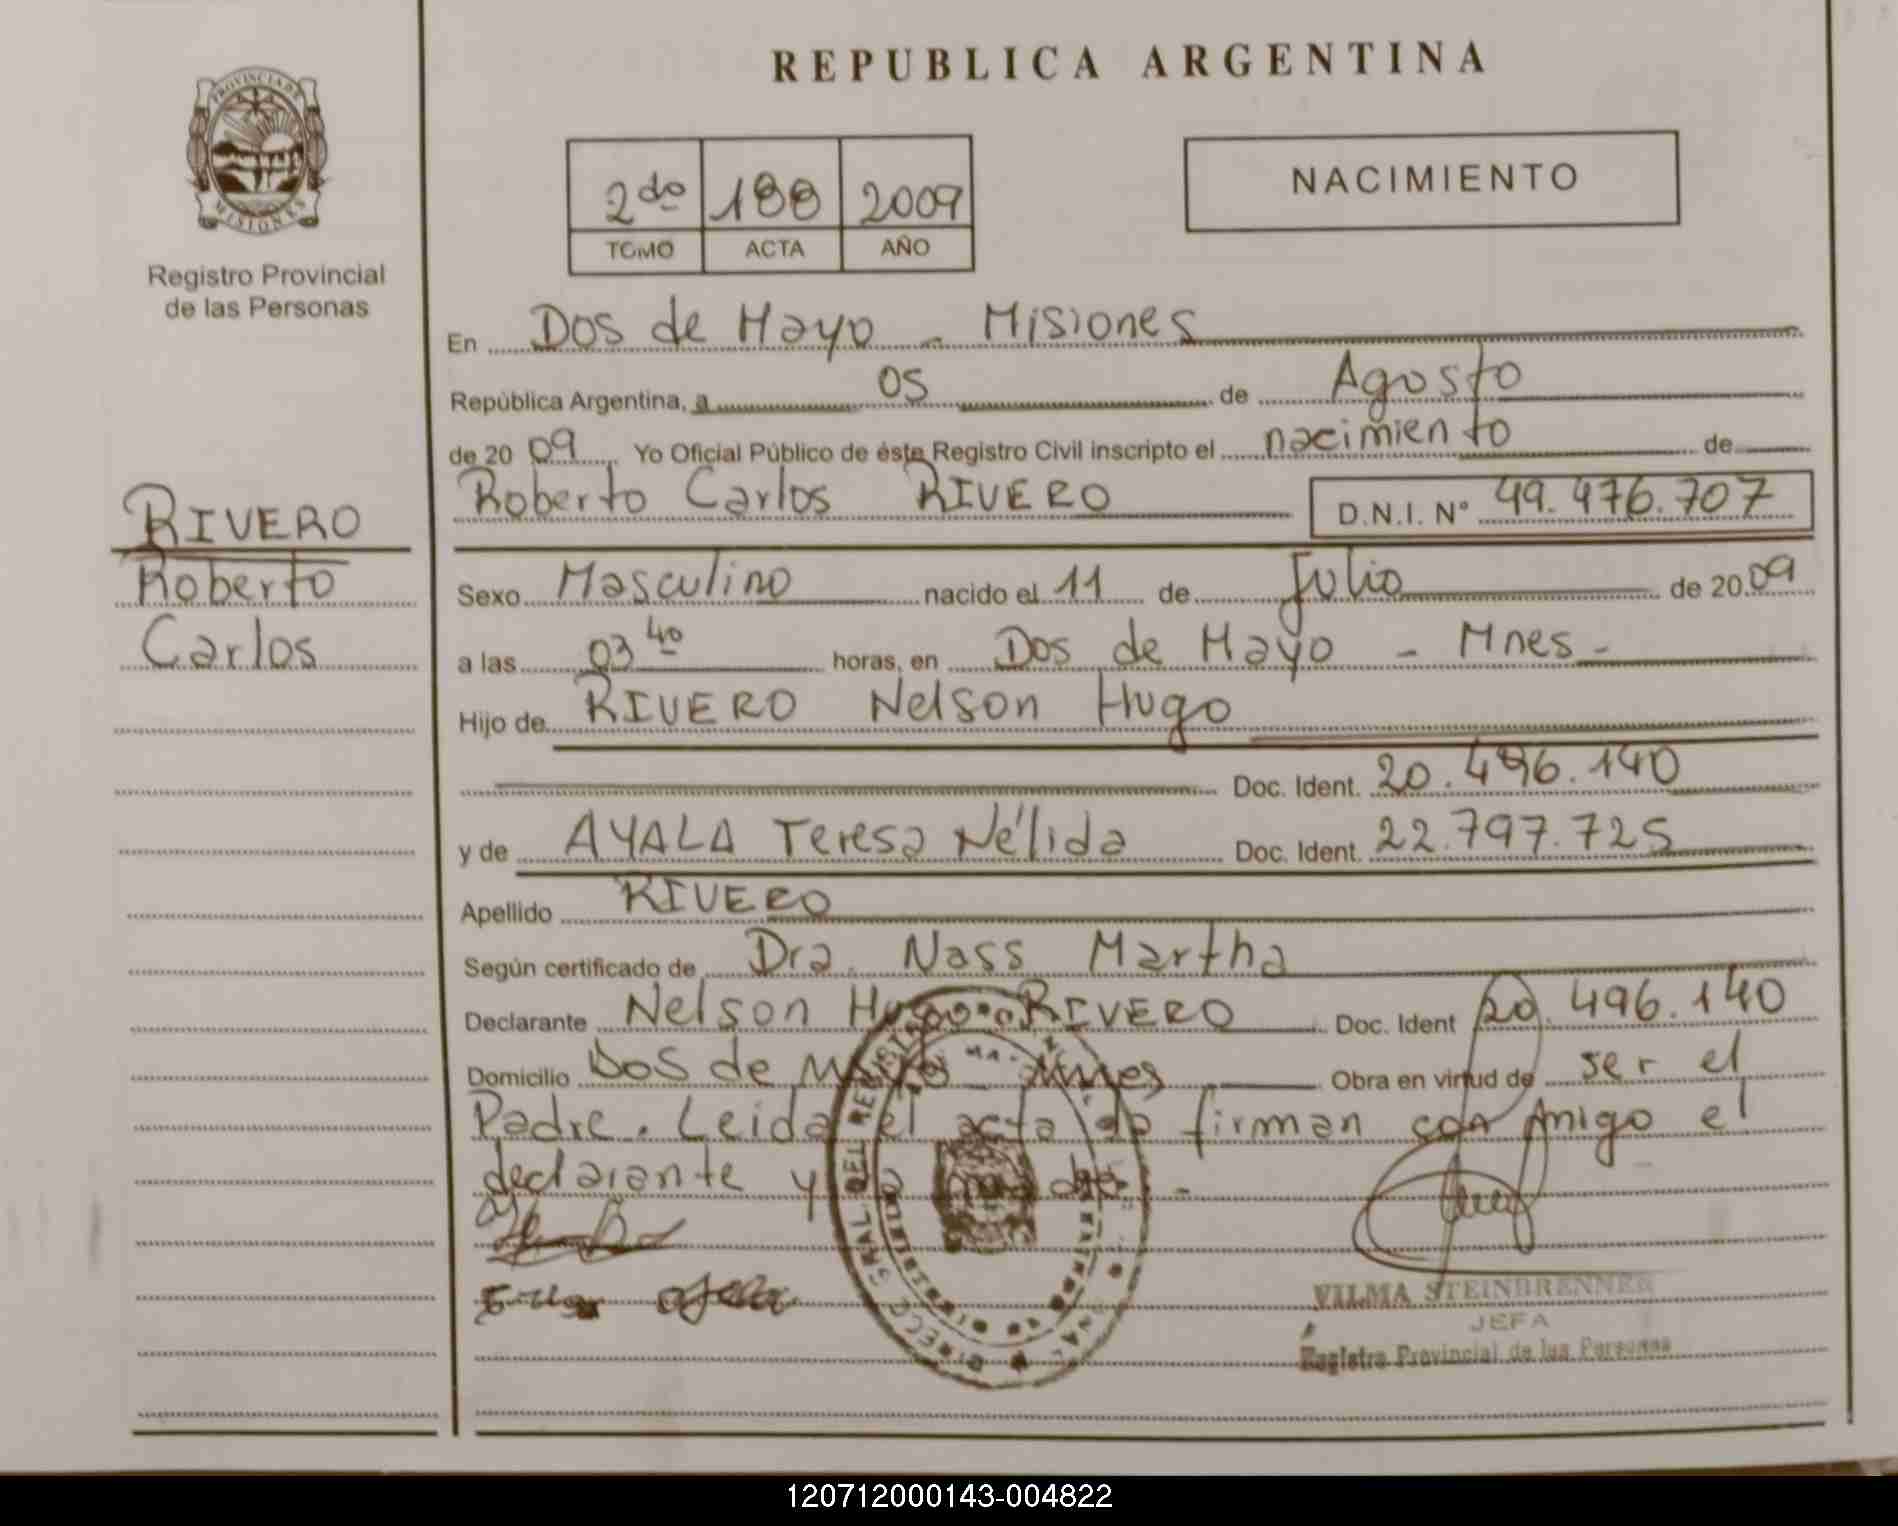 REPUBLICA ARGENTINA
PROVINCIA DE
MISIONES
Registro Provincial
de las Personas
2do 188 2009
TOMO ACTA AÑO
NACIMIENTO
En Dos de Mayo - Misiones
República Argentina, a 05 de Agosto
de 2009 Yo Oficial Público de éste Registro Civil inscripto el nacimiento de
Roberto Carlos RIVERO D.N.I. N° 49.476.707
RIVERO
Roberto
Carlos
Sexo Masculino nacido el 11 de Julio de 2009
a las 03 40 horas, en Dos de Mayo - Mnes -
Hijo de RIVERO Nelson Hugo
Doc. Ident. 20.496.140
y de AYALA Teresa Nélida Doc. Ident. 22.797.725
Apellido RIVERO
Según certificado de Dra. Nass Martha
Declarante Nelson Hugo RIVERO Doc. Ident 20.496.140
Domicilio Dos de Mayo - Mnes Obra en virtud de ser el
Padre. Leida el acta la firman con migo el
declarante y la madre. -
VILMA STEINBRENNER
JEFA
Registro Provincial de las Personas
120712000143-004822